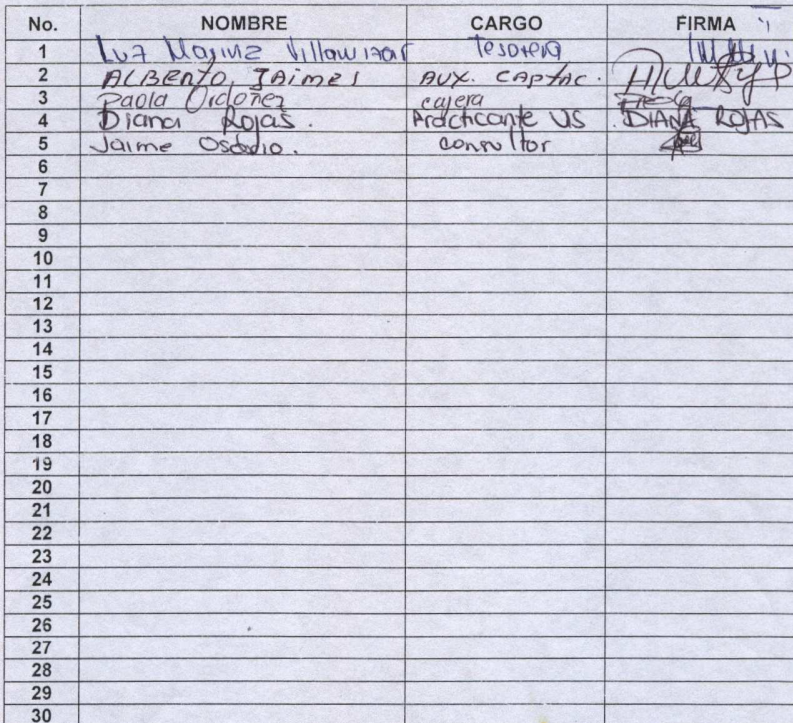 No. NOMBRE CARGO FIRMA
1 Luz Marina Villamizar Tesorera
2 ALBERTO JAIMES AUX. CAPTAC.
3 Paola Ordoñez cajera
4 Diana Rojas. Practicante UIS DIANA ROJAS
5 Jaime Osorio. consultor
6
7
8
9
10
11
12
13
14
15
16
17
18
19
20
21
22
23
24
25
26
27
28
29
30